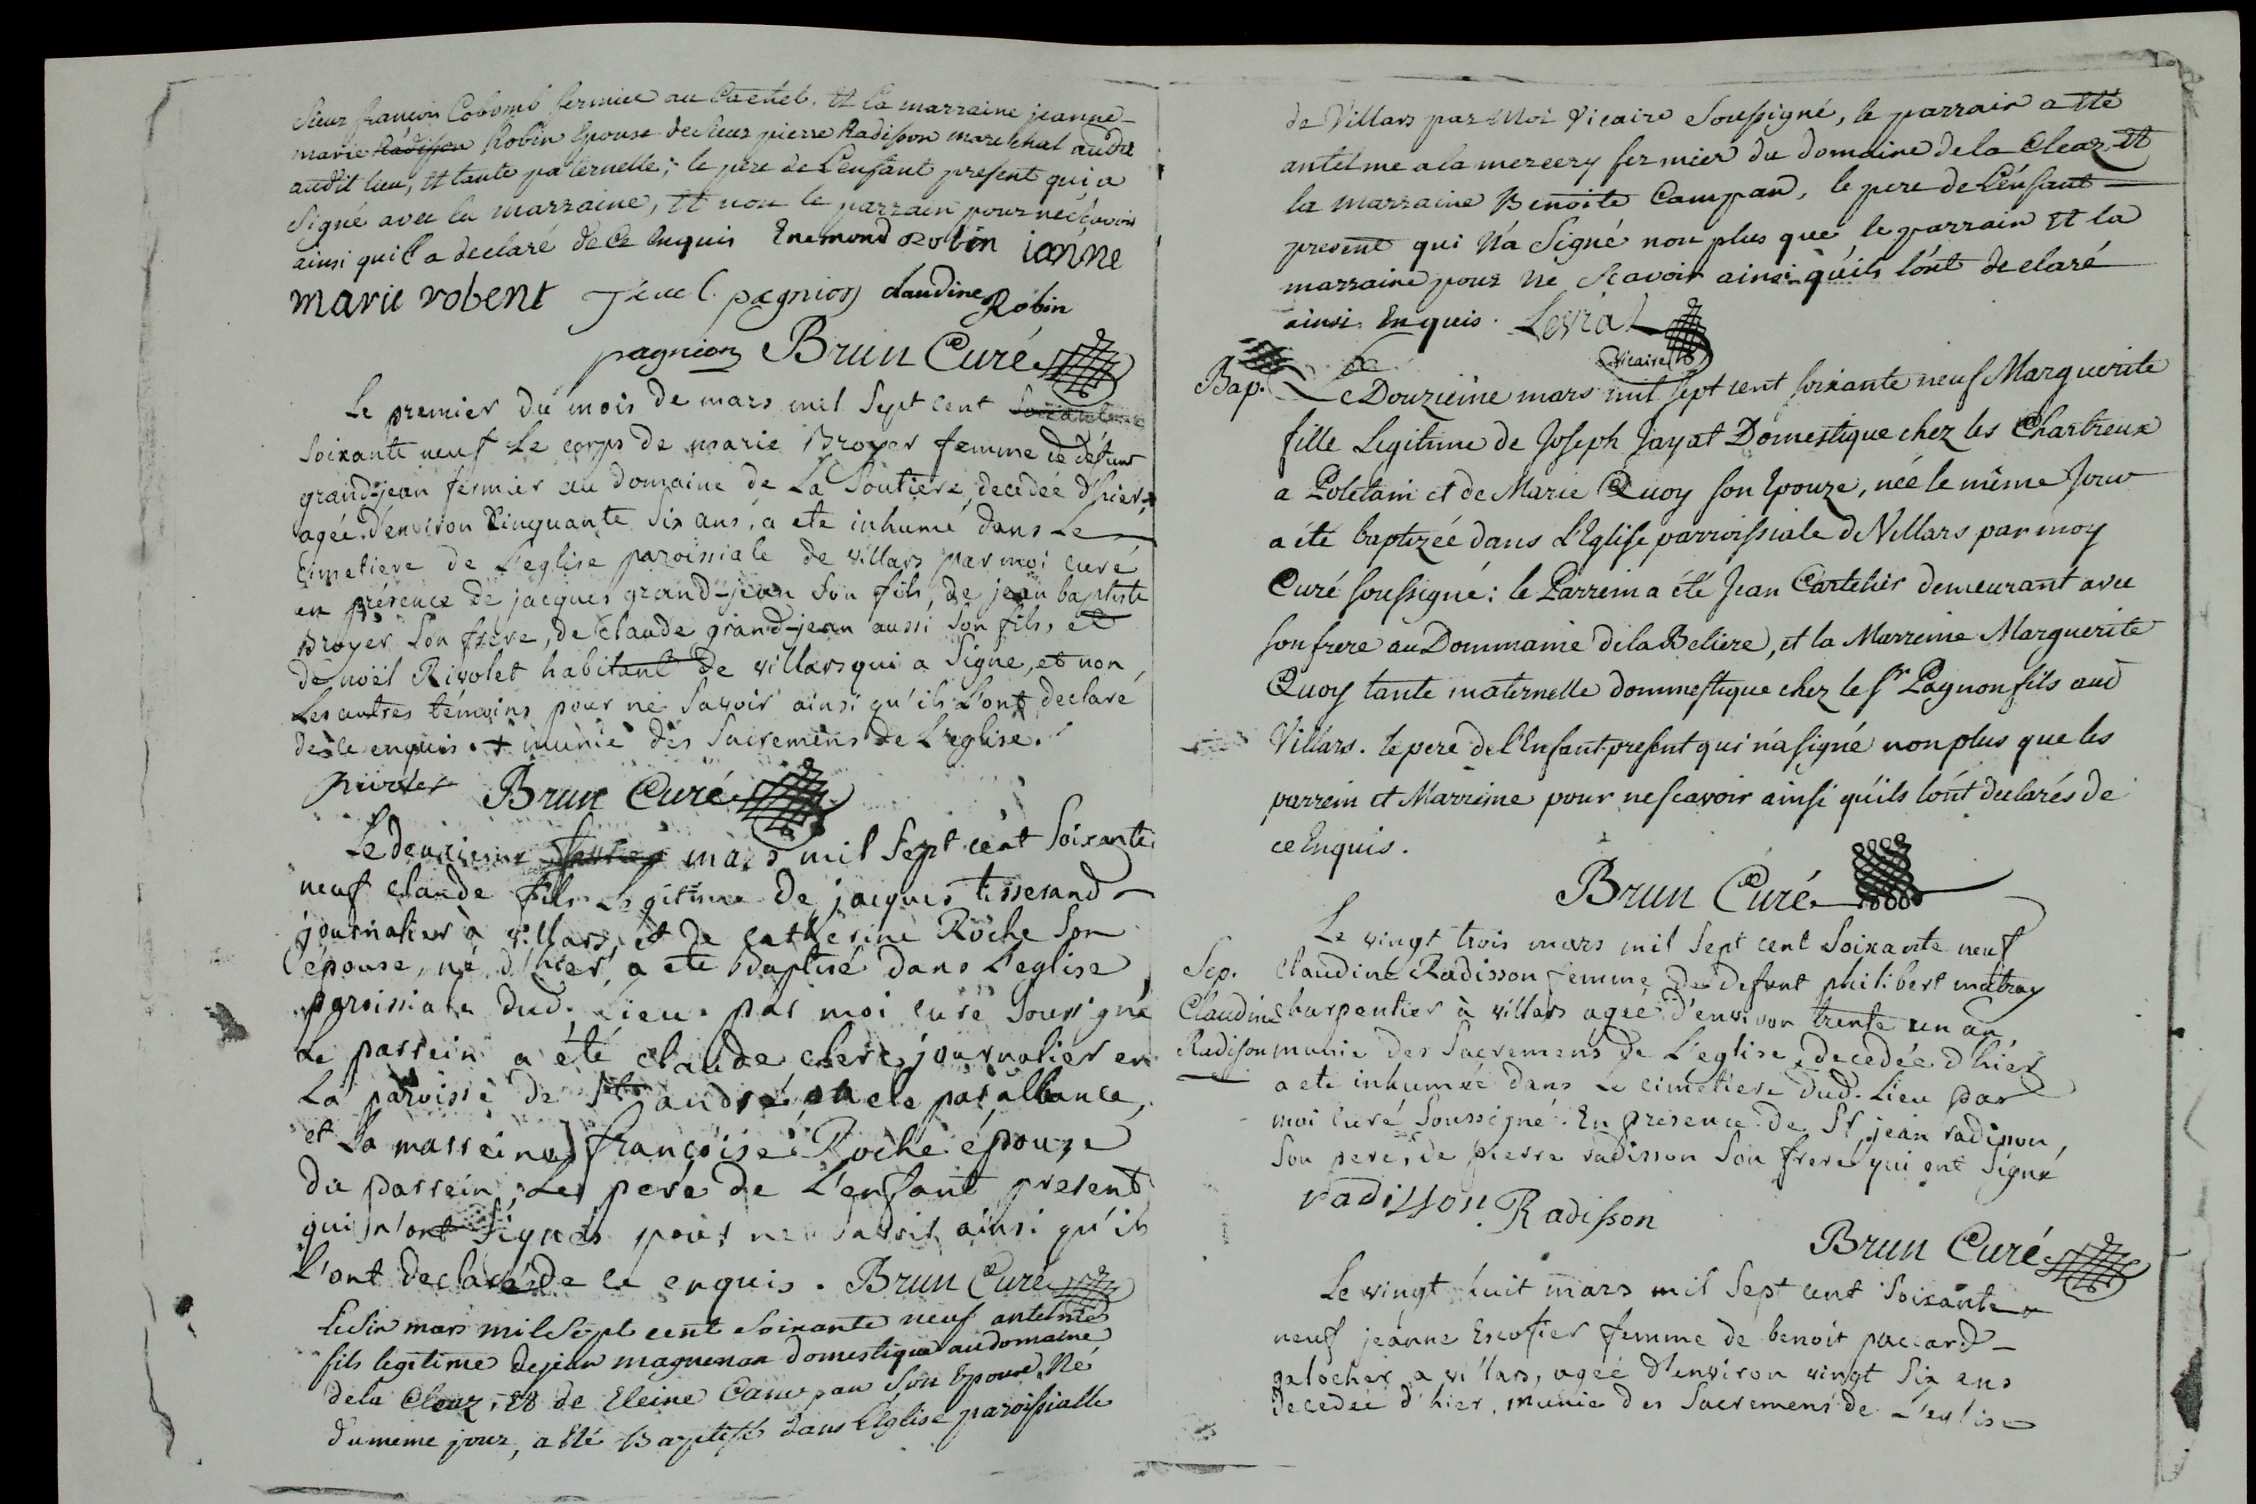 Sieur françois Colomb fermier au Chatel. Et la marraine jeanne
marie Radisson Robin Epouse de sieur pierre Radisson marechal audit
audit lieu, Et tante paternelle; le père de L'enfant present qui a
Signé avec la marraine, Et non le parrain pour ne sçavoir
ainsi qu'il a declaré de ce Enquis Enemond Robin ianne
marie robent pagnion claudine Robin
pagnion Brun Curé
Le premier du mois de mars mil Sept cent
Soixante neuf Le corps de marie Broyer femme de défunt
grand-jean fermier au domaine de La Soutiere, decedée d'hier, +
agée d'environ Cinquante Six ans, a ete inhumé dans Le
Cimetiere de L'eglise paroissiale de villars par moi curé
en présence de jacques grand-jean Son fils, de jean baptiste
Broyer Son frère, de Claude grand-jean aussi Son fils, et
de noël Rivolet habitant de villars qui a Signé, et non
Les autres témoins pour ne Savoir ainsi qu'ils L'ont declaré
de ce enquis. + munie des Sacremens de L'eglise.
Rivolet Brun Curé
Le deuxieme mars mil Sept cent Soixante
neuf claude fils Legitime de jacques tisserand
journalier à villars, et de catherine Roche Son
épouse, né d'hier a ete Baptisé dans L'eglise
paroissiale dud. Lieu par moi curé Soussigné
Le parrein a été claude clerc journalier en
La paroisse de St andré oncle par alliance,
et La marreine françoise Roche épouze
du parrein; Les pere de L'enfant present
qui n'ont Signés pour ne Savoir ainsi qu'ils
L'ont declarés de ce enquis. Brun Curé
Le Six mars mil Sept cent Soixante neuf antelme
fils legitime de jean magnenan domestique au domaine
de la Cleaz, Et de Eleine Campan Son Epouse, Né
du meme jour, a Eté Baptisé dans L'Eglise paroissialle
de Villars par Moi Vicaire Soussigné, le parrain a Eté
antelme a la mercery fermier du domaine de la Cleaz, Et
la marraine Benoite Campan, le pere de L'énfant
present qui N'a Signé non plus que le parrain Et la
marraine pour Ne Scavoir ainsi qu'ils l'ont declaré
ainsi Enquis. Levrat
vicaire
Bap. Le Douzieme mars mil sept cent soixante neuf Marguerite
fille Legitime de Joseph Jayat Domestique chez les Chartreux
a Poletain et de Marie Quoy son Epouze, née le même Jour
a été baptizée dans L'Eglise parroissiale de Villars par moy
Curé soussigné: le Parrein a été Jean Cartelier demeurant avec
son frere au Dommaine de la Beliere, et la Marreine Marguerite
Quoy tante maternelle dommestique chez le Sr Pagnon fils aud
Villars. le pere de l'Enfant present qui n'a signé non plus que les
parrein et Marreine pour ne scavoir ainsi qu'ils l'ont declarés de
ce Enquis.
Brun Curé
Le vingt trois mars mil Sept cent Soixante neuf
Sep. Claudine Radisson femme de defunt philibert matray
Claudine charpentier à villars ageé d'environ trente un an
Radisson munie des Sacremens de L'eglise decedée d'hier
a ete inhumée dans Le cimetiere dud. Lieu par
moi curé Soussigné. En presence de Sr jean radisson,
Son pere, de pierre radisson Son frere qui ont Signé
radisson Radisson
Brun Curé
Le vingt huit mars mil Sept cent Soixante
neuf jeanne Escofier femme de benoit paccard
galocher a villars, ageé d'environ vingt Six ans
decedeé d'hier, munie des Sacremens de L'eglise